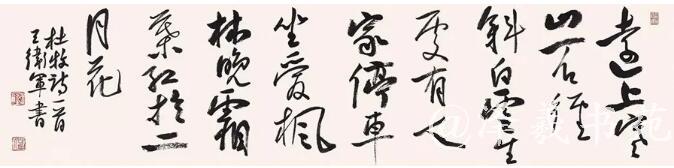 遠上寒
山石徑
斜白雲生
處有人
家停車
坐愛楓
林晚霜
葉紅於二
月花
杜牧詩一首
王衛軍書
羲书苑